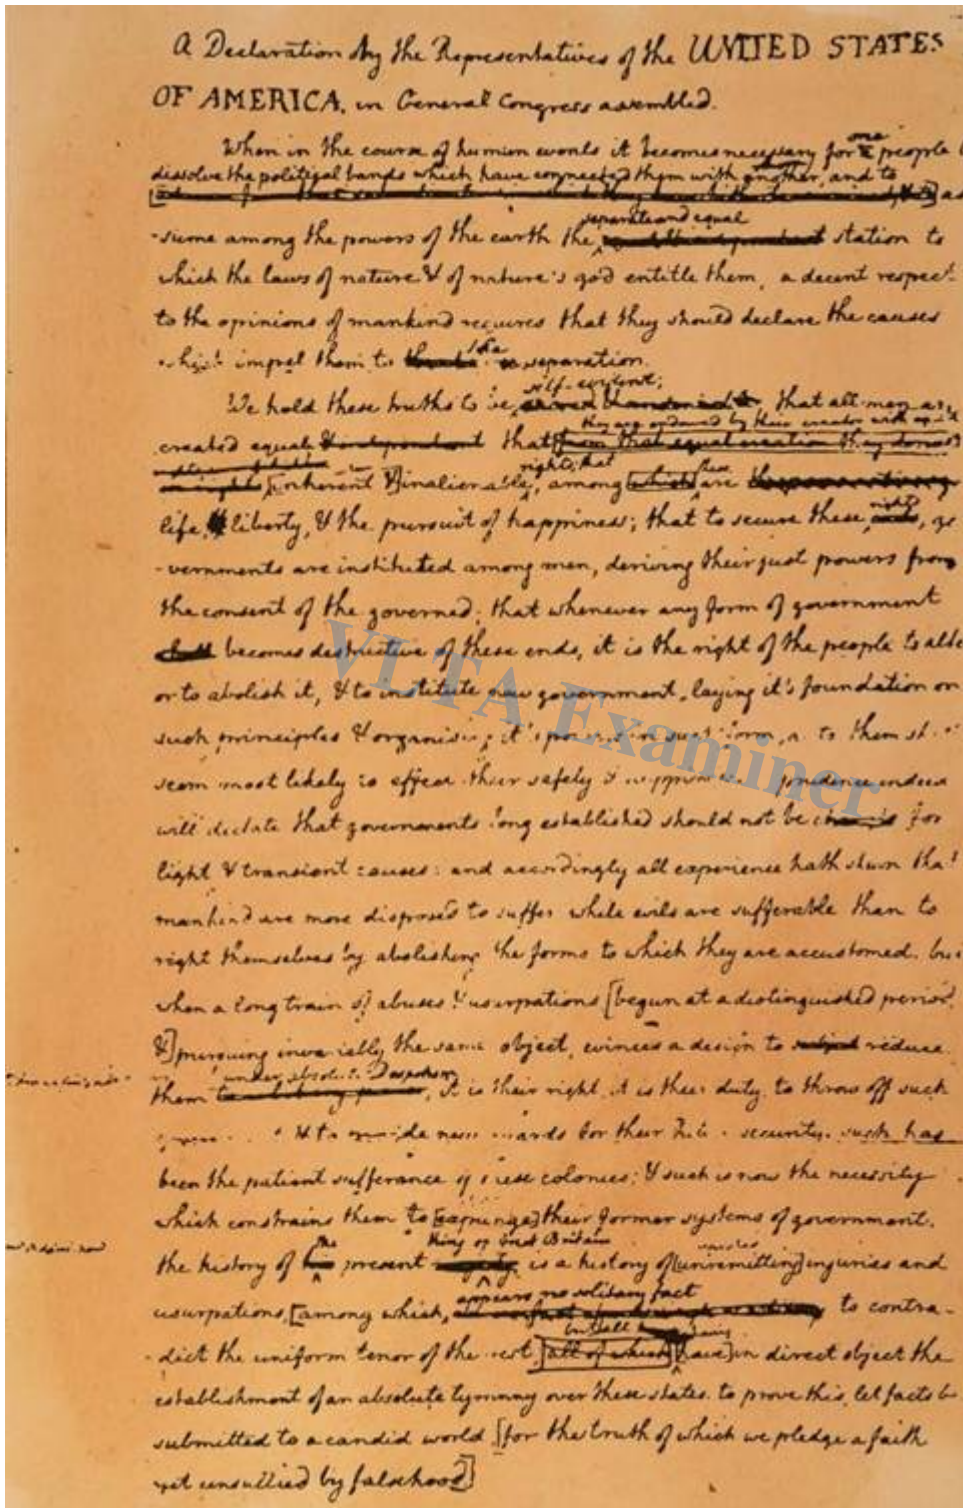 A Declaration by the Representatives of the UNITED STATES
OF AMERICA, in General Congress assembled.
When in the course of human events it becomes necessary for one people
dissolve the political bands which have connected them with another, and to
as
separate and equal
-sume among the powers of the earth the station to
which the laws of nature & of nature's god entitle them, a decent respect
to the opinions of mankind requires that they should declare the causes
which impel them to the separation.
self-evident;
We hold these truths to be that all men are
they are endowed by their creator with
created equal & independent that from that equal creation they
rights; that
[inherent &] inalienable, among which these are
life, liberty, & the pursuit of happiness; that to secure these rights, go
-vernments are instituted among men, deriving their just powers from
the consent of the governed; that whenever any form of government
shall becomes destructive of these ends, it is the right of the people to alter
or to abolish it, & to institute new government, laying it's foundation on
such principles & organising it's powers in such form, as to them shall
seem most likely to effect their safety & happiness. prudence indeed
will dictate that governments long established should not be for
light & transient causes: and accordingly all experience hath shewn that
mankind are more disposed to suffer while evils are sufferable than to
right themselves by abolishing the forms to which they are accustomed. but
when a long train of abuses & usurpations [begun at a distinguished period,
&] pursuing invariably the same object, evinces a design to subject reduce
under absolute Despotism
them, it is their right, it is their duty, to throw off such
& to new guards for their security. such has
been the patient sufferance of these colonies; & such is now the necessity
which constrains them to [expunge] their former systems of government.
the king of Great Britain
the history of his present is a history of [unremitting] injuries and
appears no solitary fact
usurpations, [among which, to contra-
but all
-dict the uniform tenor of the rest, [all of which] [have] in direct object the
establishment of an absolute tyranny over these states. to prove this, let facts be
submitted to a candid world [for the truth of which we pledge a faith
yet unsullied by falsehood]
VLTA Examiner